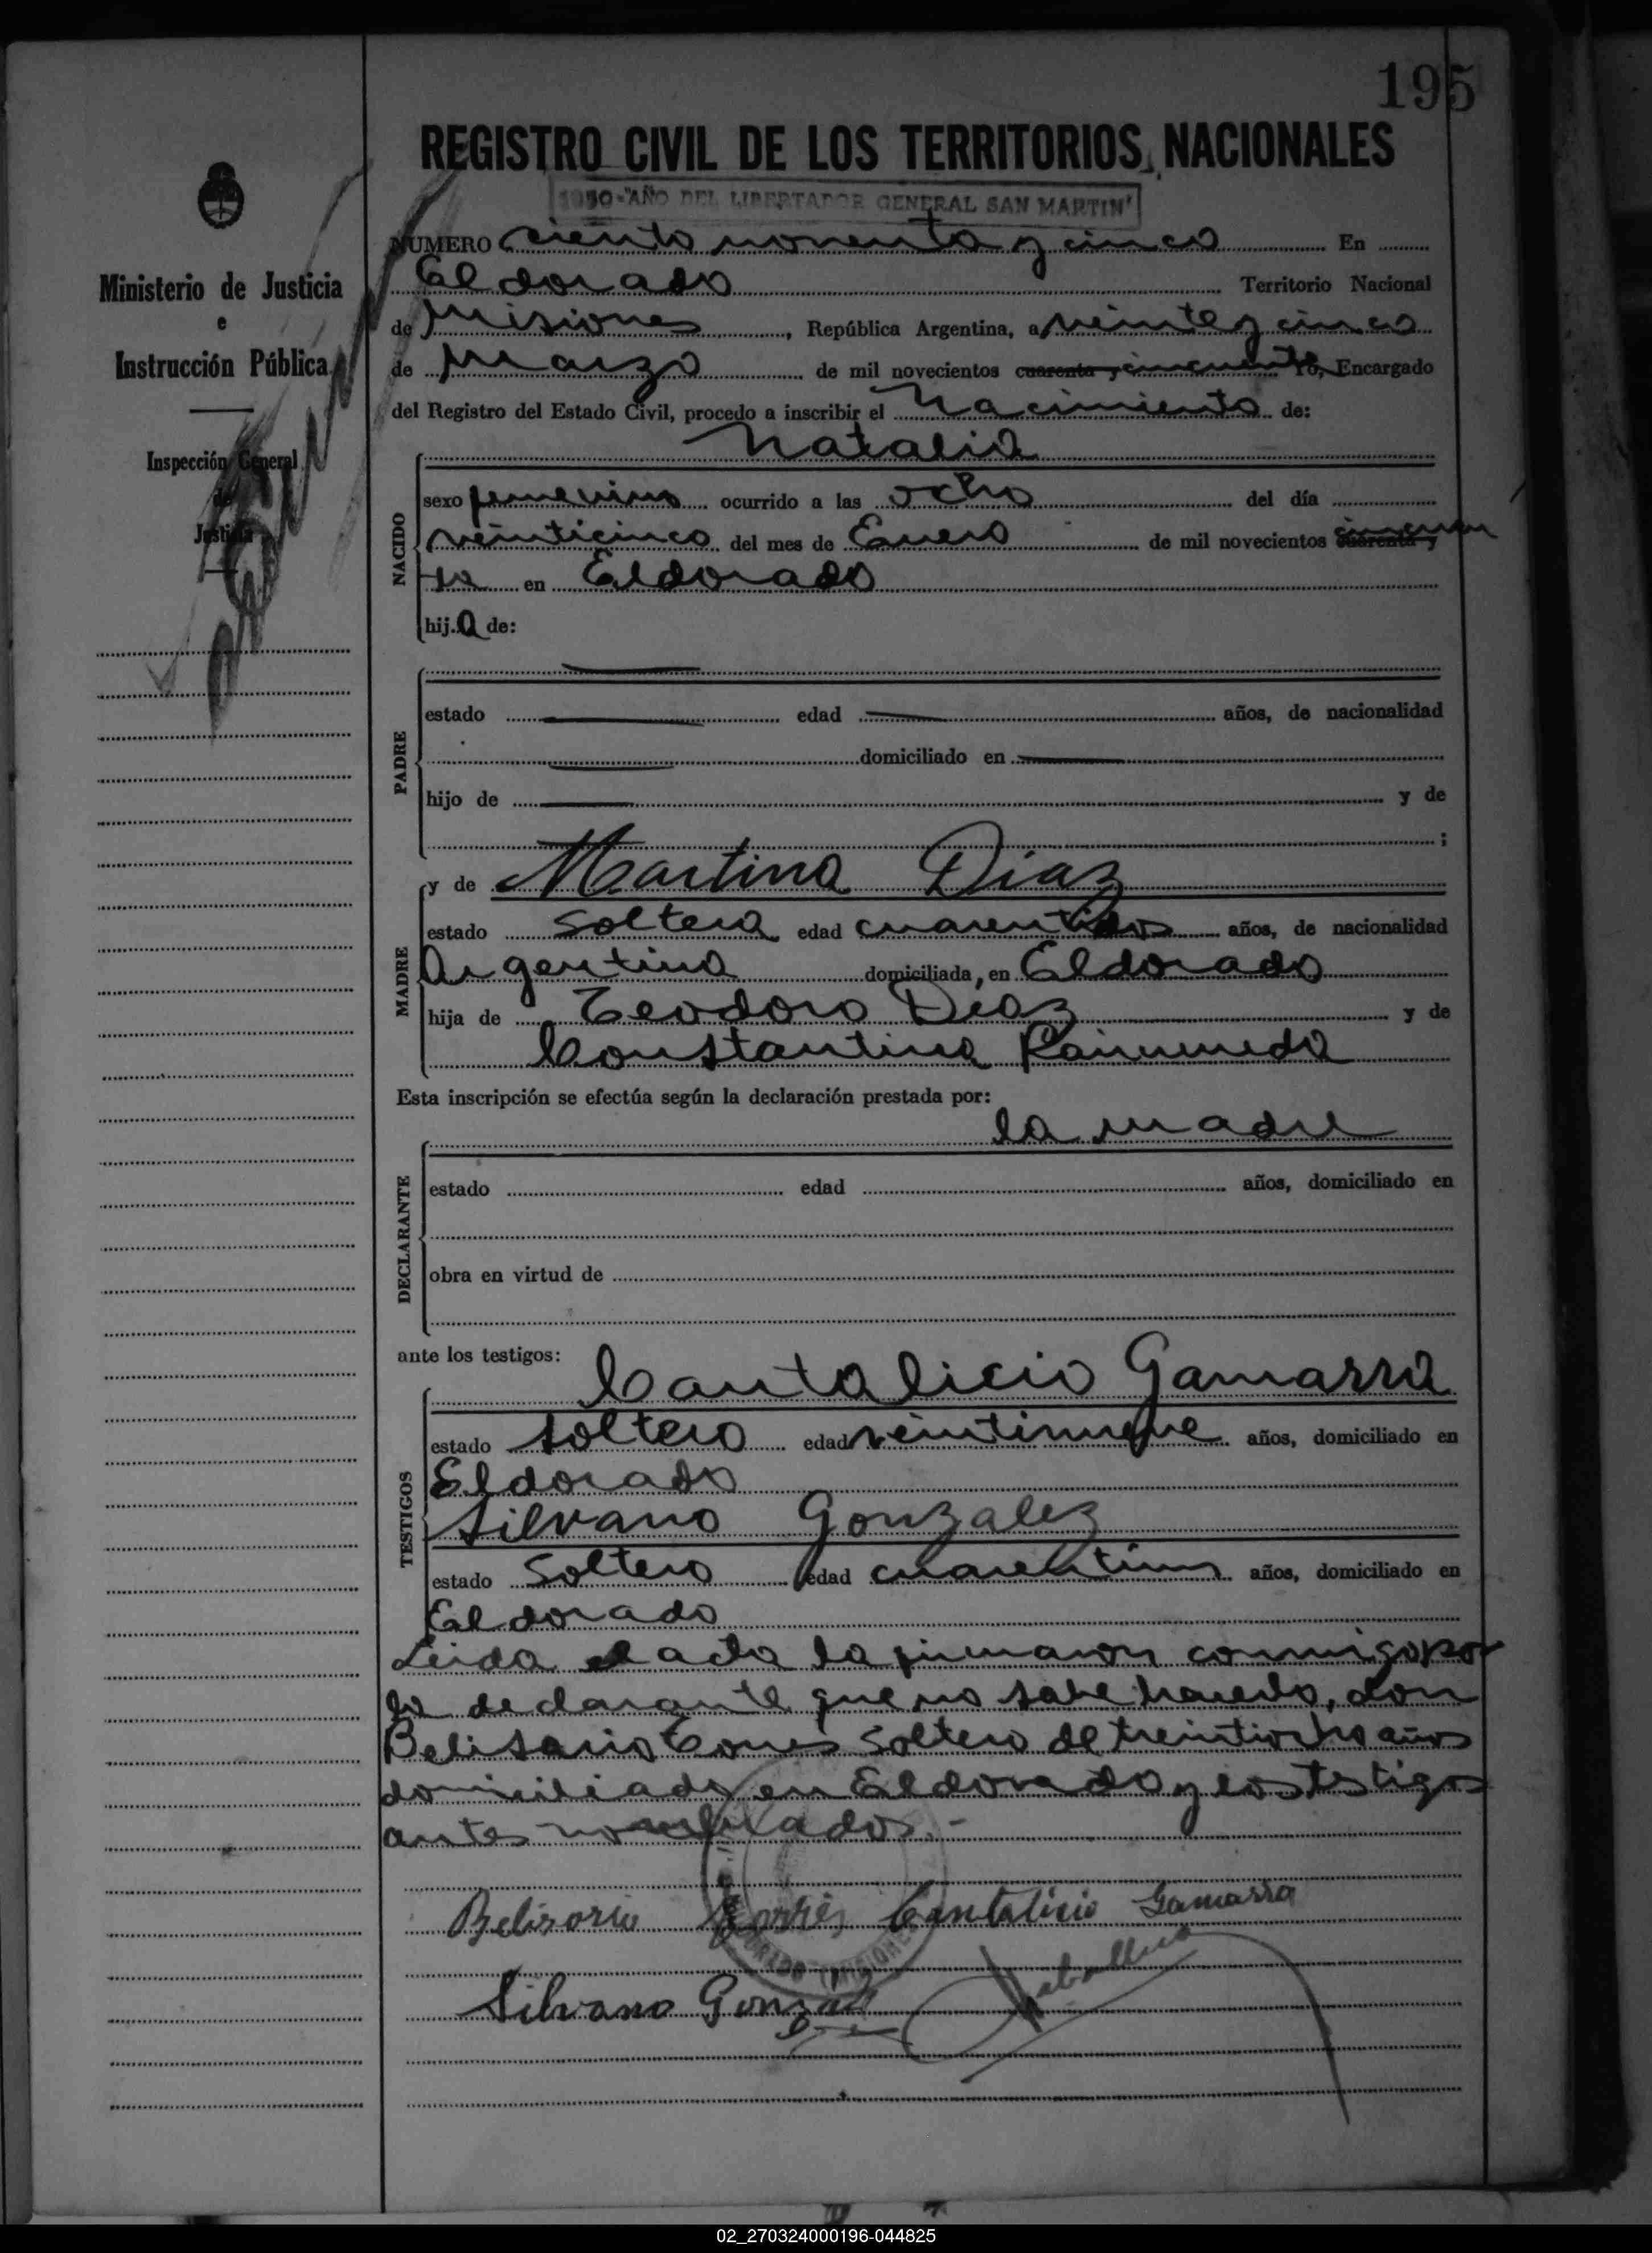 195
REGISTRO CIVIL DE LOS TERRITORIOS NACIONALES
1950-"AÑO DEL LIBERTADOR GENERAL SAN MARTIN"
Ministerio de Justicia
e
Instrucción Pública
Inspección General
de
Justicia
NUMERO ciento noventa y cinco En
Eldorado Territorio Nacional
de Misiones, República Argentina, a veinte y cinco
de Marzo de mil novecientos cuarenta y cincuenta Yo, Encargado
del Registro del Estado Civil, procedo a inscribir el Nacimiento de:
NACIDO
Natalia
sexo femenino ocurrido a las ocho del día
veinticinco del mes de Enero de mil novecientos cuarenta y cincuen
ta en Eldorado
hija de:
PADRE
estado edad años, de nacionalidad
domiciliado en
hijo de y de
;
MADRE
y de Martina Díaz
estado soltera edad cuarentidos años, de nacionalidad
Argentina domiciliada, en Eldorado
hija de Teodoro Díaz y de
Constantina Raimunda
Esta inscripción se efectúa según la declaración prestada por:
la madre
DECLARANTE
estado edad años, domiciliado en
obra en virtud de
ante los testigos:
TESTIGOS
Cantalicio Gamarra
estado soltero edad veintinueve años, domiciliado en
Eldorado
Silvano Gonzalez
estado soltero edad cuarentiun años, domiciliado en
Eldorado
Leida el acta la firmaron conmigo por
la declarante que no sabe hacerlo, don
Belisario Torres soltero de treintiocho años
domiciliado en Eldorado y los testigos
antes nombrados.-
Belizario Torres Cantalicio Gamarra
Silvano Gonzalez
02_270324000196-044825